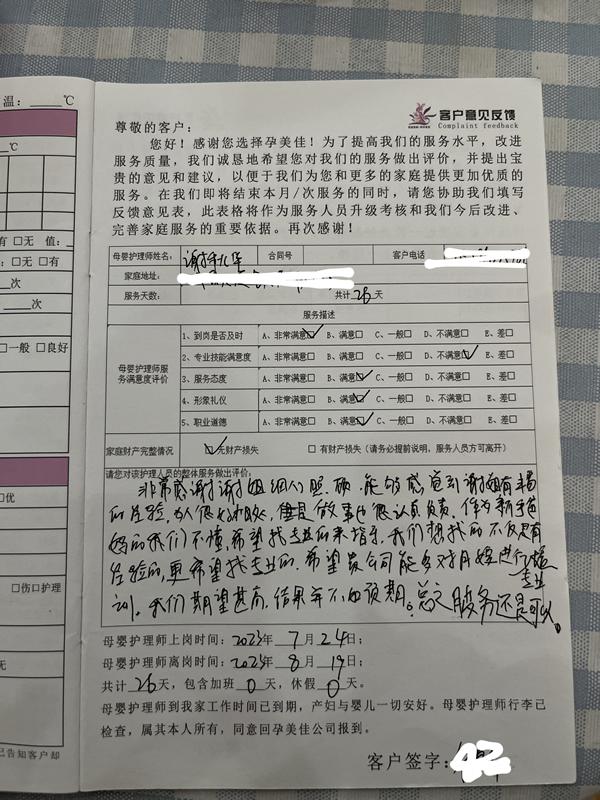 温：____℃
客户意见反馈
Complaint feedback
尊敬的客户：
您好！感谢您选择孕美佳！为了提高我们的服务水平，改进
服务质量，我们诚恳地希望您对我们的服务做出评价，并提出宝
贵的意见和建议，以便于我们为您和更多的家庭提供更加优质的
服务。在我们即将结束本月/次服务的同时，请您协助我们填写
反馈意见表，此表格将作为服务人员升级考核和我们今后改进、
完善家庭服务的重要依据。再次感谢！
母婴护理师姓名： 谢 华 合同号 客户电话
家庭地址：
服务天数： 共计 26 天
服务描述
母婴护理师服
务满意度评价
1、到岗是否及时 A、非常满意☑ B、满意□ C、一般□ D、不满意□ E、差□
2、专业技能满意度 A、非常满意□ B、满意□ C、一般□ D、不满意☑ E、差□
3、服务态度 A、非常满意□ B、满意☑ C、一般□ D、不满意□ E、差□
4、形象礼仪 A、非常满意□ B、满意☑ C、一般□ D、不满意□ E、差□
5、职业道德 A、非常满意□ B、满意☑ C、一般□ D、不满意□ E、差□
家庭财产完整情况 ☑无财产损失 □有财产损失（请务必提前说明，服务人员方可离开）
请您对该护理人员的整体服务做出评价：
非常感谢谢姐细心照顾，能够感觉到谢姐有丰富
的经验，为人很好相处，但是做事也很认真负责，作为新手爸
妈的我们不懂，希望找专业的来指导，我们想找的不仅是有
经验的，更希望找专业的，希望贵公司能多对月嫂进行专业培
训，我们期望甚高，结果并不如预期。总之服务还是可以。
母婴护理师上岗时间：2023年 7 月 24 日；
母婴护理师离岗时间：2023年 8 月 19 日；
共计 26 天，包含加班 0 天，休假 0 天。
母婴护理师到我家工作时间已到期，产妇与婴儿一切安好。母婴护理师行李已
检查，属其本人所有，同意回孕美佳公司报到。
客户签字：
有 □无 值：
：□无 □有
____次
____次
一般 □良好
□优
□伤口护理
无
已告知客户却